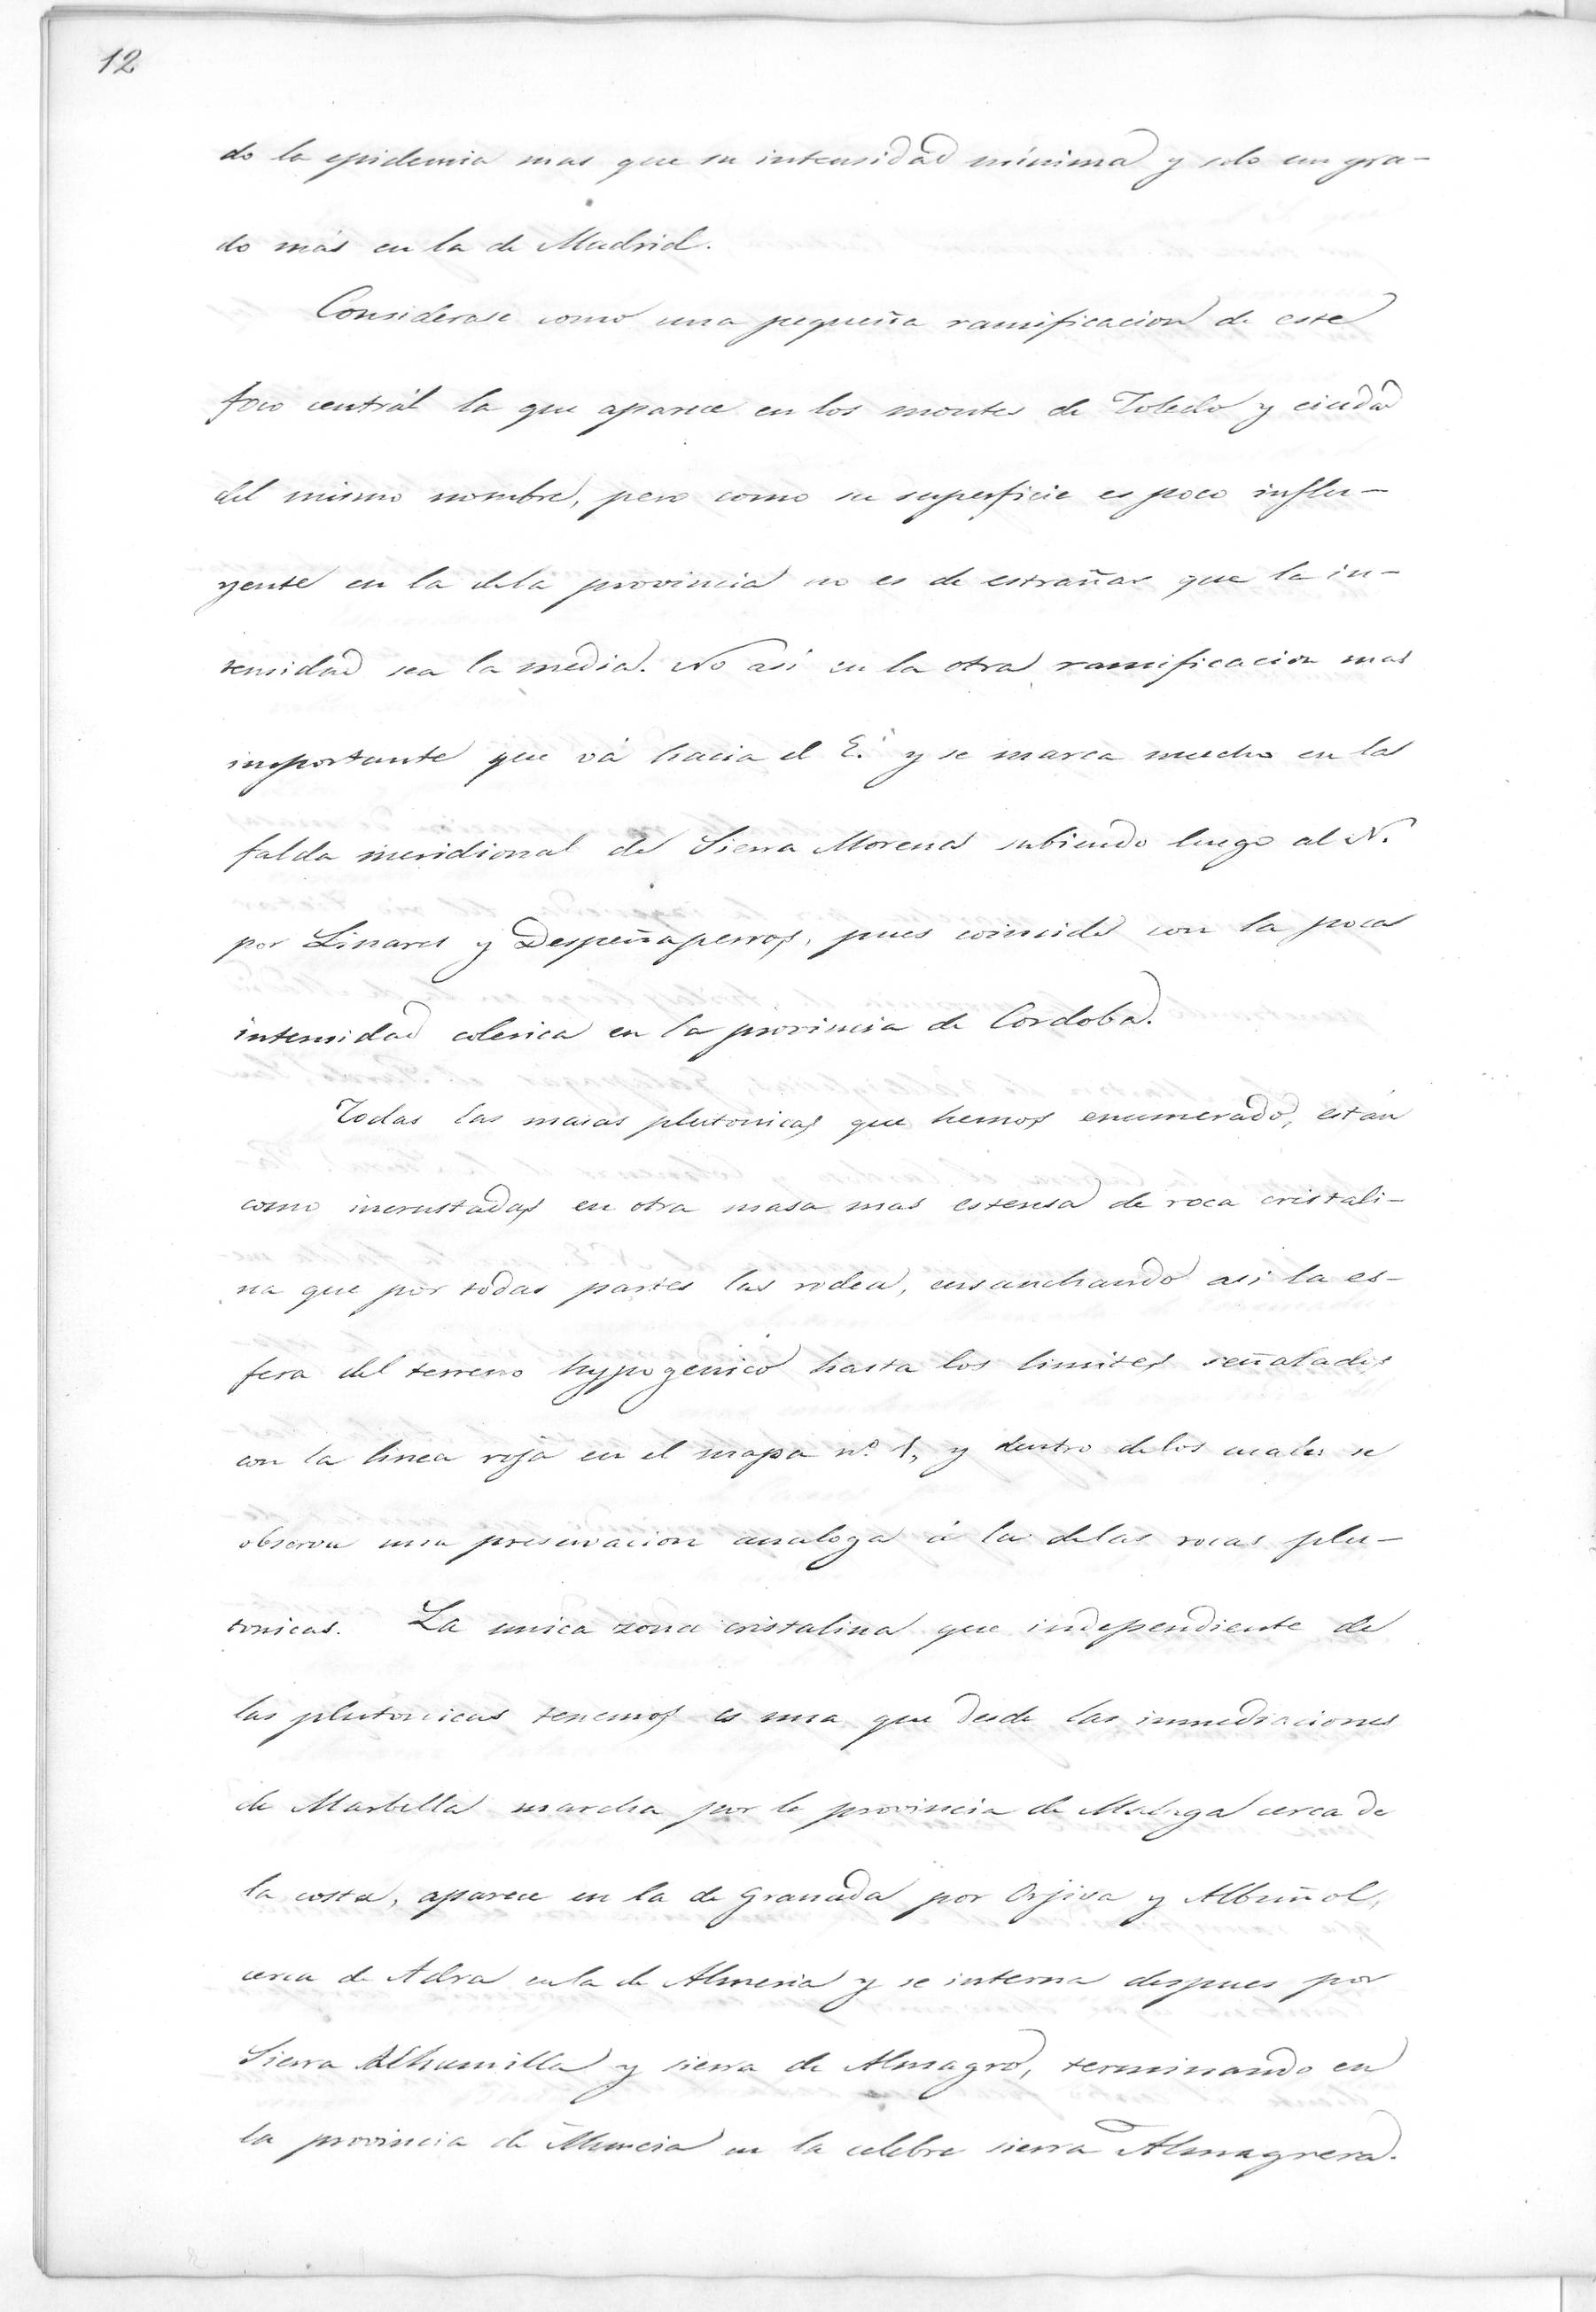 12
do la epidemia mas que su intensidad mínima y solo un gra-
do más en la de Madrid.
Considerase como una pequeña ramificacion de este
foco centrál la que aparece en los montes de Toledo y ciudad
del mismo nombre, pero como su superficie es poco influ-
yente en la dela provincia no es de estrañar que la in-
tensidad sea la media. No asi en la otra ramificacion mas
importante que vá hacia el E. y se marca mucho en la
falda meridional de Sierra Morena subiendo luego al N.
por Linares y Despeñaperros, pues coincide con la poca
intensidad colerica en la provincia de Cordoba.
Todas las masas plutonicas que hemos enumerado, están
como incrustadas en otra masa mas estensa de roca cristali-
na que por todas partes las rodea, ensanchando asi la es-
fera del terreno hypogenico hasta los limites señalados
con la linea roja en el mapa nº 1, y dentro delos cuales se
observa una preservacion analoga á la delas rocas plu-
tonicas. La unica zona cristalina que independiente de
las plutonicas tenemos es una que desde las inmediaciones
de Marbella marcha por la provincia de Malaga cerca de
la costa, aparece en la de Granada por Orjiva y Albuñol,
cerca de Adra enla de Almeria y se interna despues por
Sierra Alhamilla y sierra de Almagro, terminando en
la provincia de Murcia en la celebre sierra Almagrera.